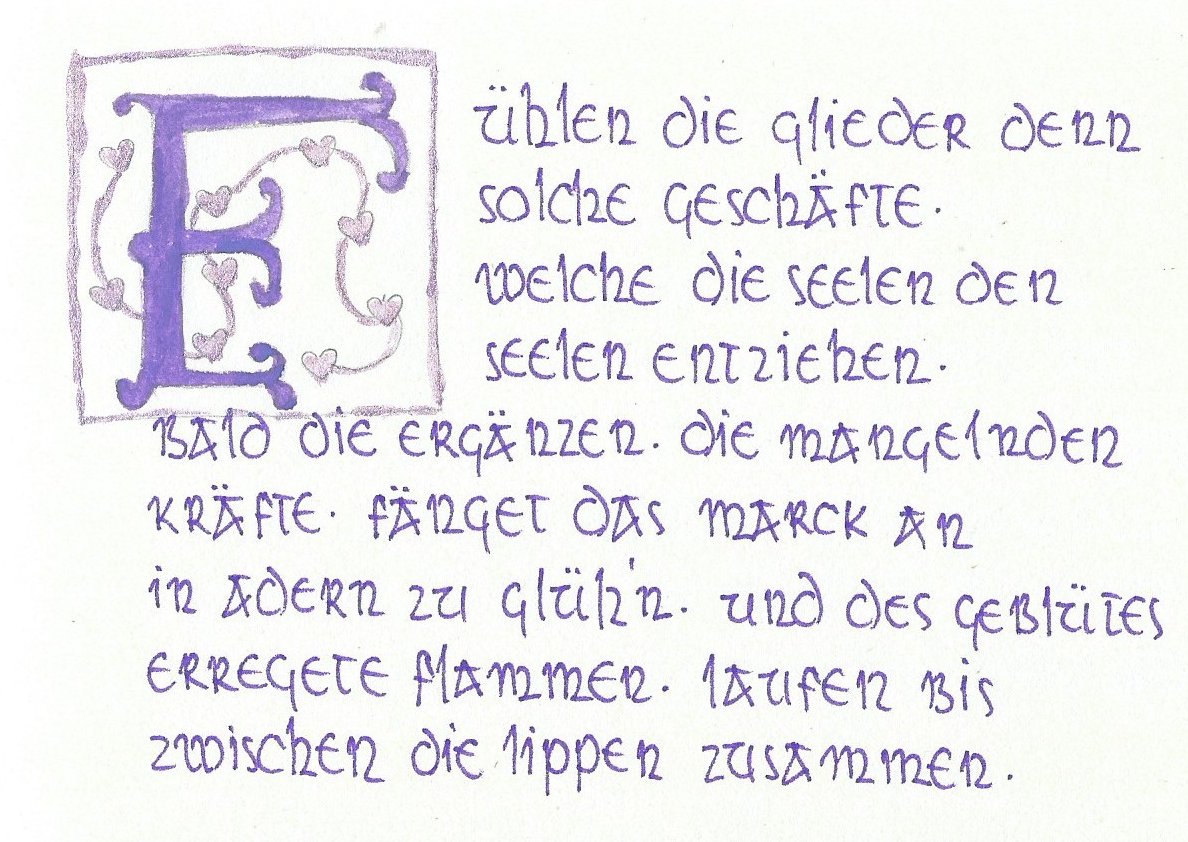 Fühlen die glieder denn
solche geschäfte.
welche die seelen den
seelen entziehen.
bald die ergänzen. die mangelnden
kräfte. fänget das marck an
in adern zu glüh'n. und des geblütes
erregete flammen. laufen bis
zwischen die lippen zusammen.